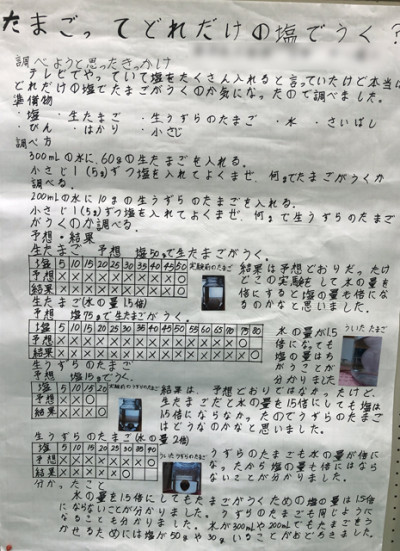 たまごってどれだけの塩でうく?
調べようと思ったきっかけ
テレビでやっていて塩をたくさん入れると言っていたけど本当は
どれだけの塩でたまごがうくのか気になったので調べました。
準備物
・塩 ・生たまご ・生うずらのたまご ・水 ・さいばし
・びん ・はかり ・小さじ
調べ方
300mLの水に、60gの生たまごを入れる。
小さじ1(5g)ずつ塩を入れてよくまぜ、何gでたまごがうくか
調べる。
200mLの水に10gの生うずらのたまごを入れる。
小さじ1(5g)ずつ塩を入れてよくまぜ、何gで生うずらのたまご
がうくのか調べる。
予想・結果
生たまご 予想 塩50gで生たまごがうく。
塩 5 10 15 20 25 30 35 40 45 50
予想 × × × × × × × × × ○
結果 × × × × × × × × × ○
実験前のたまご
結果は予想どおりだったけ
どこの実験をして水の量を
倍にすると塩の量も倍にな
るのかなと思いました。
生たまご(水の量1.5倍)
予想 塩75gで生たまごがうく。
塩 5 10 15 20 25 30 35 40 45 50 55 60 65 70 75 80
予想 × × × × × × × × × × × × × × ○
結果 × × × × × × × × × × × × × × ×
水の量が1.5
倍になっても
塩の量はち
がうことが
分かりました
ういたたまご
生うずらのたまご
予想 塩15gでうく。
塩 5 10 15 20
予想 × × ○
結果 × × × ○
結果は、予想どおりではなかったけど、
生たまごだと水の量を1.5倍にしても塩は
1.5倍にならなかったのでうずらのたまご
はどうなのかなと思いました。
生うずらのたまご(水の量2倍)
塩 5 10 15 20 25 30 35 40
ういたうずらのたまご
うずらのたまごも水の量が倍に
なったから塩の量も倍にはなら
ないことが分かりました。
分かったこと
水の量を1.5倍にしてもたまごがうくための塩の量は1.5倍
にならないことが分かりました。うずらのたまごも同じように
なることも分かりました。水が300mLや200mLでもたまごをう
かせるためには塩が50gや30gいることがおどろきました。